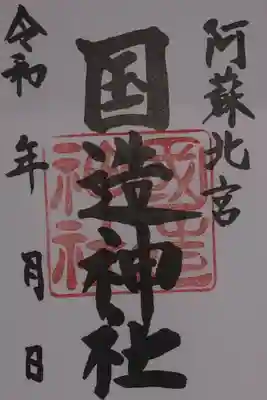 阿蘇北宮
国造神社
令和 年 月 日
國造
神社